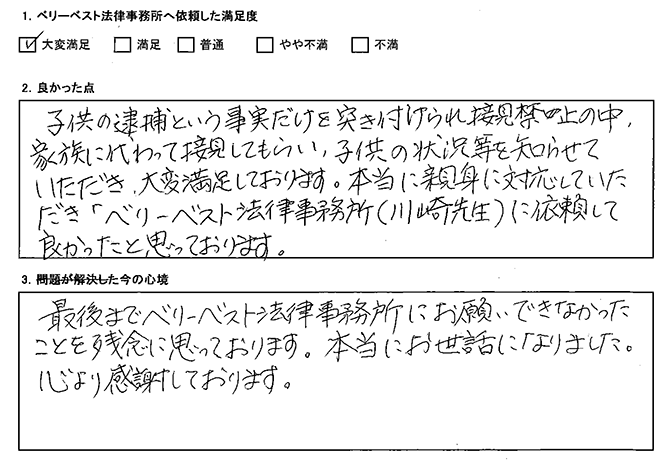 1. ベリーベスト法律事務所へ依頼した満足度
大変満足 満足 普通 やや不満 不満
2. 良かった点
子供の逮捕という事実だけを突き付けられ接見禁止の中、
家族に代わって接見してもらい、子供の状況等を知らせて
いただき、大変満足しております。本当に親身に対応していた
だき「ベリーベスト法律事務所(川崎先生)に依頼して
良かったと思っております。
3. 問題が解決した今の心境
最後までベリーベスト法律事務所にお願いできなかった
ことを残念に思っております。本当にお世話になりました。
心より感謝しております。